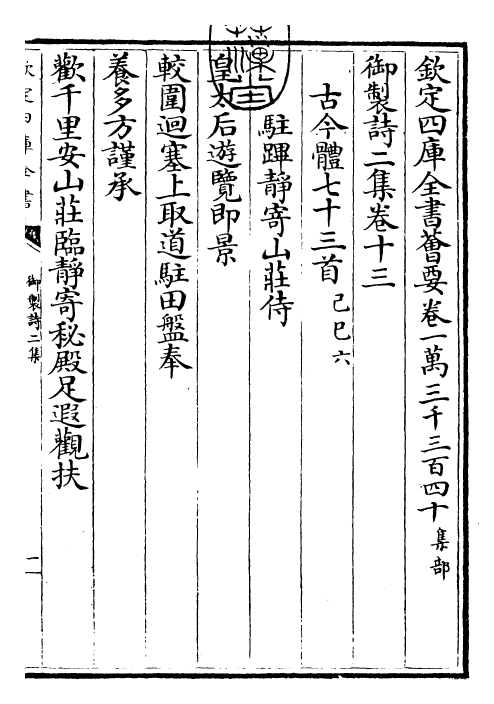 欽定四庫全書薈要卷一萬三千三百四十集部
御製詩二集卷十三
古今體七十三首己巳六
駐蹕靜寄山莊侍
皇太后遊覽即景
較圍迴塞上取道駐田盤奉
養多方謹承
歡千里安山莊臨靜寄秘殿足遐觀扶
欽定四庫全書
御製詩二集
一